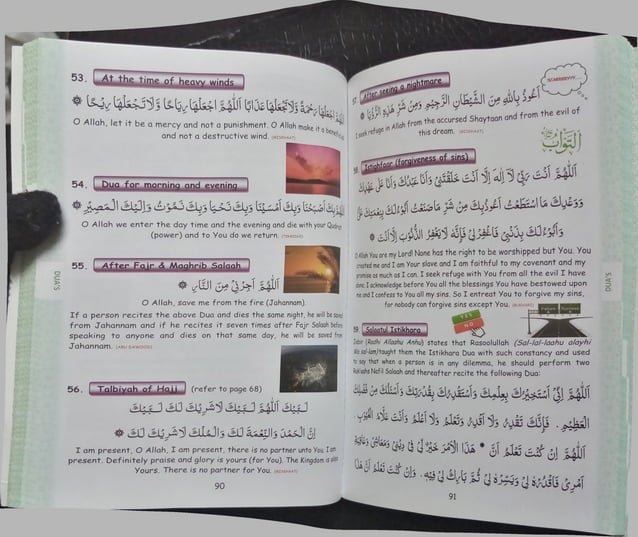 53. At the time of heavy winds
اَللّٰهُمَّ اجْعَلْهَا رَحْمَةً وَّلَا تَجْعَلْهَا عَذَابًا اَللّٰهُمَّ اجْعَلْهَا رِيَاحًا وَّلَا تَجْعَلْهَا رِيْحًا
O Allah, let it be a mercy and not a punishment. O Allah make it a beneficial
and not a destructive wind.
54. Dua for morning and evening
اَللّٰهُمَّ بِكَ اَصْبَحْنَا وَبِكَ اَمْسَيْنَا وَبِكَ نَحْيَا وَبِكَ نَمُوْتُ وَاِلَيْكَ الْمَصِيْرِ
O Allah we enter the day time and the evening and die with your Qudrat
(power) and to You do we return. (TIRMIDHI)
55. After Fajr & Maghrib Salaah
اَللّٰهُمَّ اَجِرْنِيْ مِنَ النَّارِ
O Allah, save me from the fire (Jahannam).
If a person recites the above Dua and dies the same night, he will be saved
from Jahannam and if he recites it seven times after Fajr Salaah before
speaking to anyone and dies on that same day, he will be saved from
Jahannam. (ABU DAWOOD)
56. Talbiyah of Hajj (refer to page 68)
لَبَّيْكَ اَللّٰهُمَّ لَبَّيْكَ لَبَّيْكَ لَاشَرِيْكَ لَكَ لَبَّيْكَ
اِنَّ الْحَمْدَ وَالنِّعْمَةَ لَكَ وَالْمُلْكَ لَاشَرِيْكَ لَكَ
I am present, O Allah, I am present, there is no partner unto You. I am
present. Definitely praise and glory is yours (for You). The Kingdom is also
Yours. There is no partner for You.
90
DUA'S
57. After seeing a nightmare
اَعُوْذُ بِاللّٰهِ مِنَ الشَّيْطَانِ الرَّجِيْمِ وَمِنْ شَرِّ هٰذِهِ الرُّؤْيَا
I seek refuge in Allah from the accursed Shaytaan and from the evil of
this dream.
التَّوَّابُ
58. Istighfaar (forgiveness of sins)
اَللّٰهُمَّ اَنْتَ رَبِّيْ لَآ اِلٰهَ اِلَّا اَنْتَ خَلَقْتَنِيْ وَاَنَا عَبْدُكَ وَاَنَا عَلٰى عَهْدِكَ
وَوَعْدِكَ مَا اسْتَطَعْتُ اَعُوْذُبِكَ مِنْ شَرِّ مَاصَنَعْتُ اَبُوْءُلَكَ بِنِعْمَتِكَ عَلَيَّ
وَاَبُوْءُلَكَ بِذَنْبِيْ فَاغْفِرْلِيْ فَاِنَّهٗ لَا يَغْفِرُ الذُّنُوْبَ اِلَّا اَنْتَ
O Allah You are my Lord! None has the right to be worshipped but You. You
created me and I am Your slave and I am faithful to my covenant and my
promise as much as I can. I seek refuge with You from all the evil I have
done. I acknowledge before You all the blessings You have bestowed upon
me and I confess to You all my sins. So I entreat You to forgive my sins,
for nobody can forgive sins except You.
YES
NO
59 Salaatul Istikhara
Jabir (Radhi Allaahu Anhu) states that Rasoolullah (Sal-lal-laahu alayhi
Wa sal-lam)taught them the Istikhara Dua with such constancy and used
to say that when a person is in any dilemma, he should perform two
Rakaahs Nafil Salaah and thereafter recite the following Dua:
اَللّٰهُمَّ اِنِّيْ اَسْتَخِيْرُكَ بِعِلْمِكَ وَاَسْتَقْدِرُكَ بِقُدْرَتِكَ وَاَسْئَلُكَ مِنْ فَضْلِكَ
الْعَظِيْمِ . فَاِنَّكَ تَقْدِرُ وَلَا اَقْدِرُ وَتَعْلَمُ وَلَا اَعْلَمُ وَاَنْتَ عَلَّامُ الْغُيُوْبِ
اَللّٰهُمَّ اِنْ كُنْتَ تَعْلَمُ اَنَّ * هٰذَا الْاَمْرَ خَيْرٌ لِّيْ فِيْ دِيْنِيْ وَمَعَاشِيْ وَعَاقِبَةِ
اَمْرِيْ فَاقْدُرْهُ لِيْ وَيَسِّرْهُ لِيْ ثُمَّ بَارِكْ لِيْ فِيْهِ . وَاِنْ كُنْتَ تَعْلَمُ اَنَّ هٰذَا
91
DUA'S